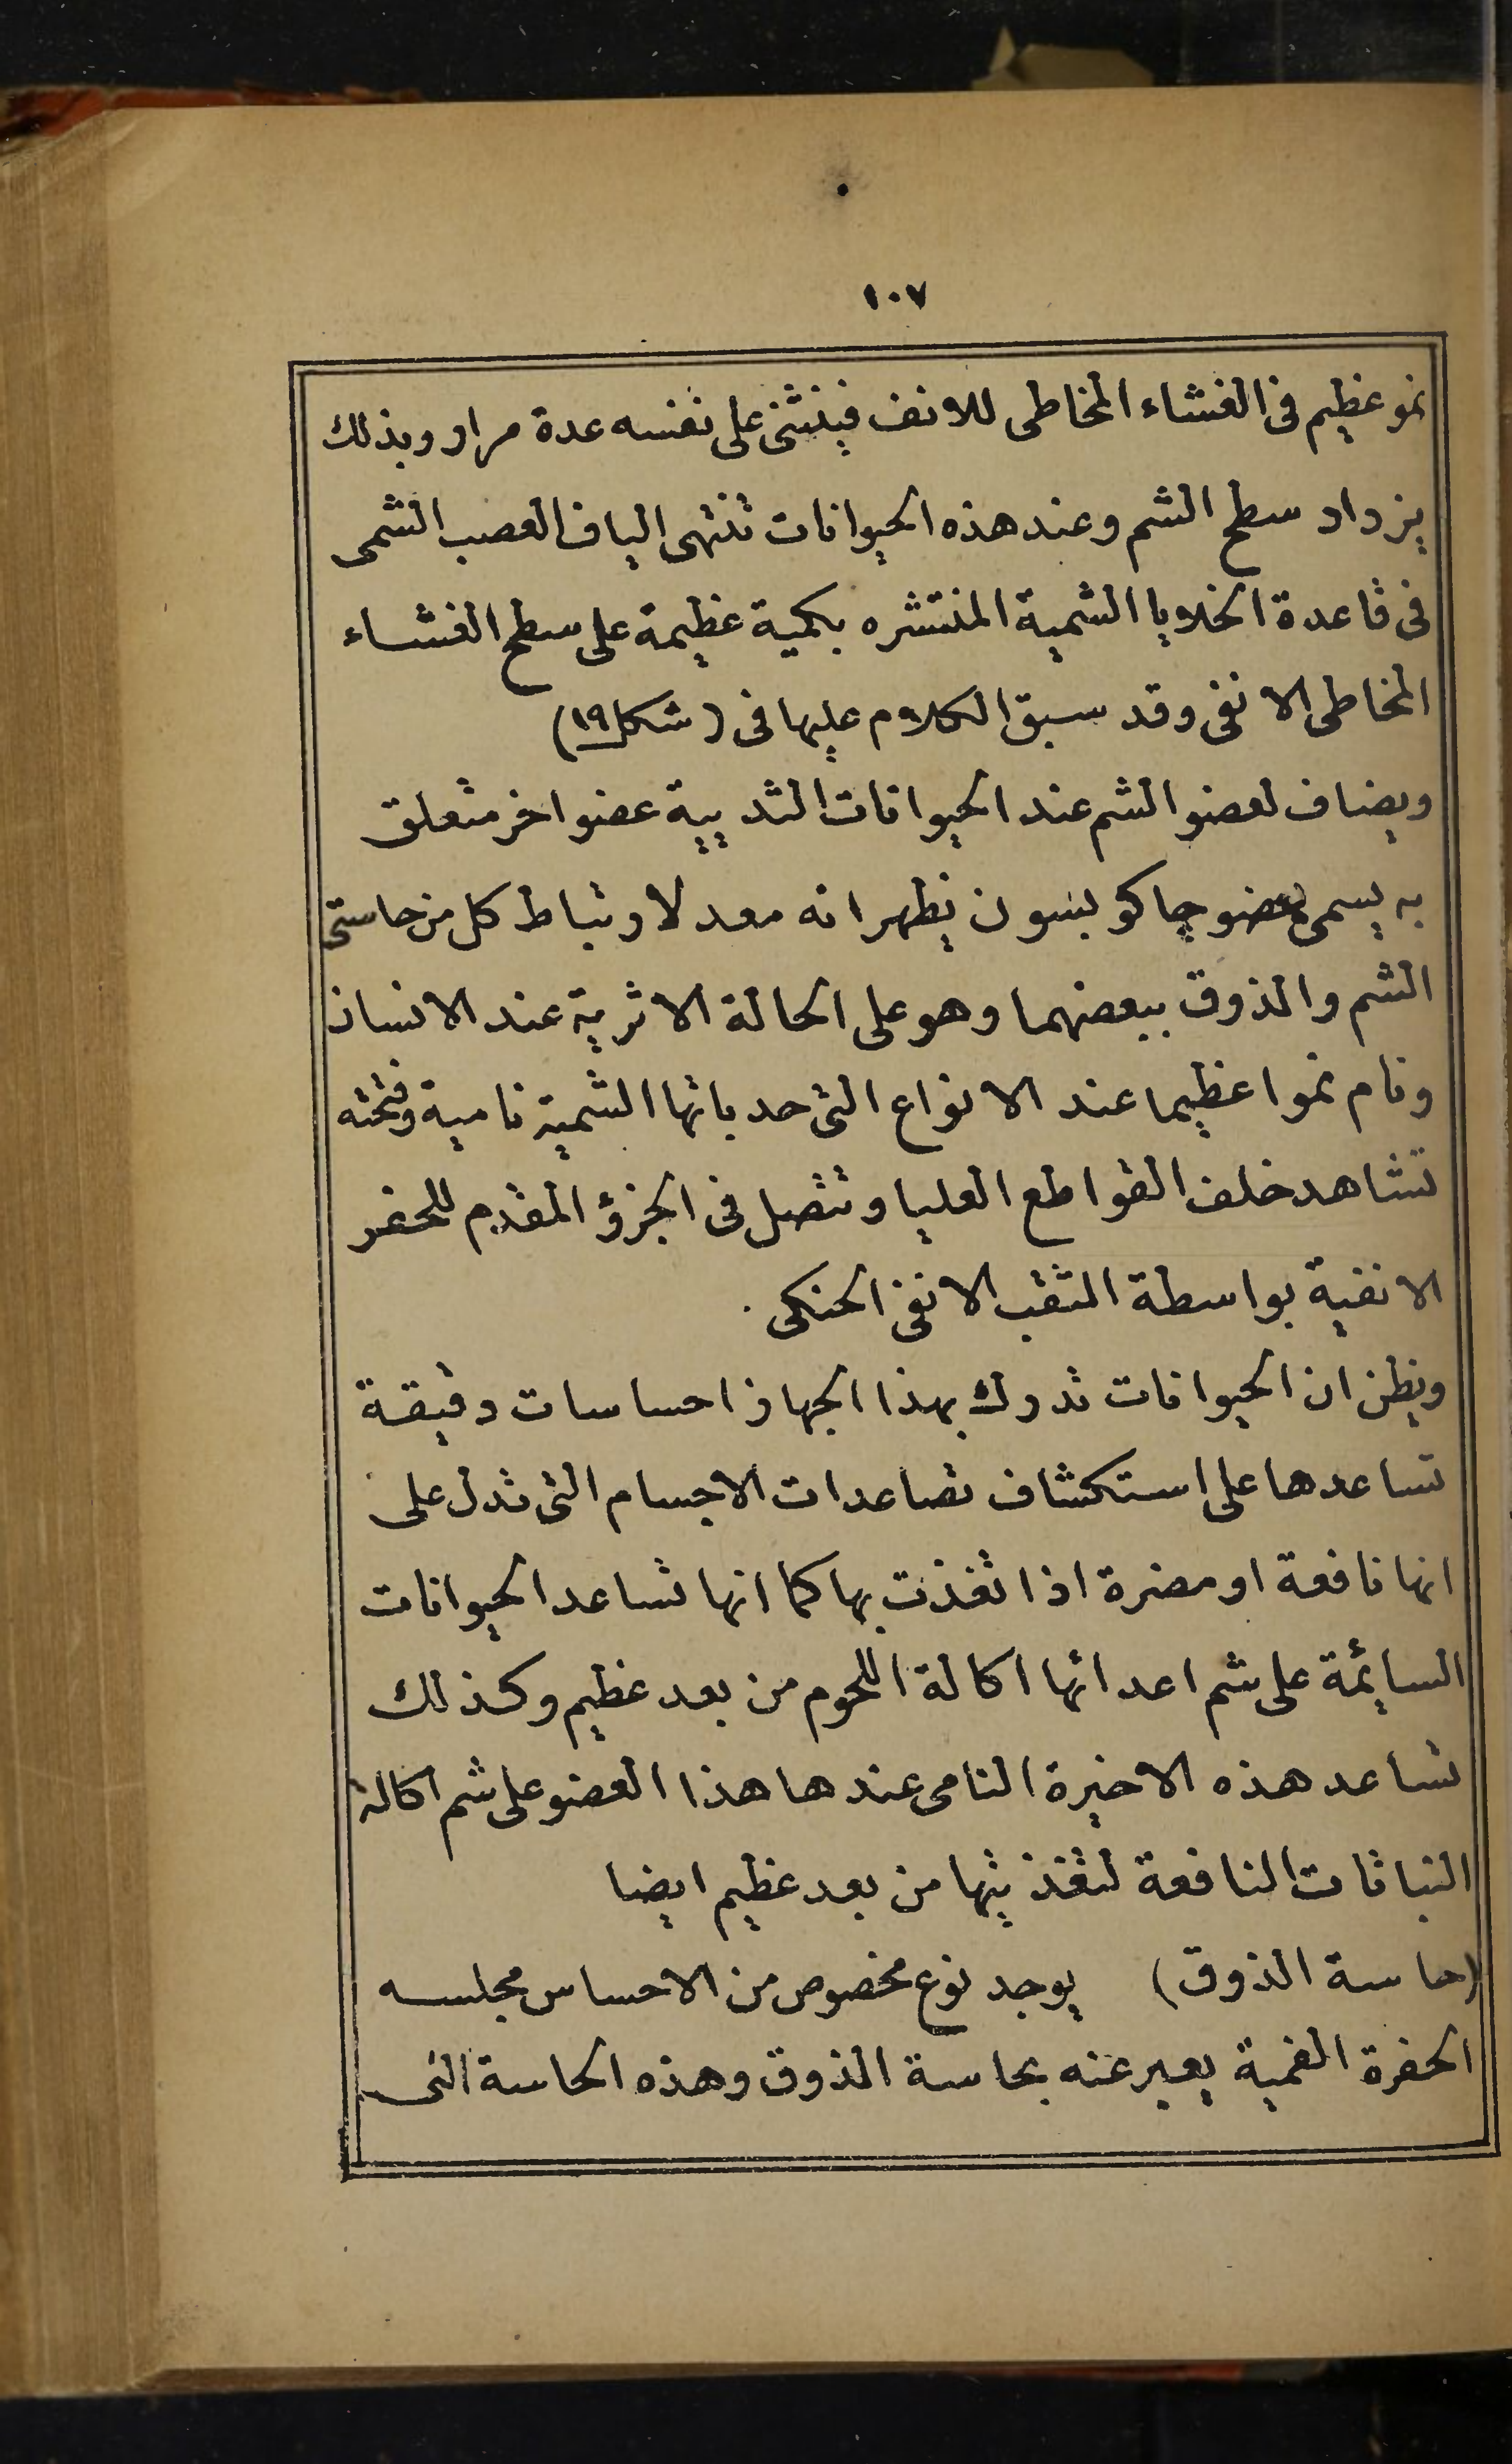 ١٠٧
نمو عظيم فى الغشاء المخاطى للانف فينثنى على نفسه عدة مرار وبذلك
يزداد سطح الشم وعند هذه الحيوانات تنتهى الياف العصب الشمى
فى قاعدة الخلايا الشمية المنتشره بكمية عظيمة على سطح الغشاء
المخاطى الانفى وقد سبق الكلام عليها فى (شكل ١٩)
ويضاف لعضو الشم عند الحيوانات الثديية عضو اخر متعلق
به يسمى بعضو جاكوبسون يظهر انه معد لارتباط كل من حاستى
الشم والذوق ببعضهما وهو على الحالة الاثرية عند الانسان
ونام نموا عظيما عند الانواع التى حدباتها الشمية نامية وفتحته
تشاهد خلف القواطع العليا وتتصل فى الجزؤ المقدم للحفر
الانفية بواسطة الثقب الانفى الحنكى .
ويظن ان الحيوانات تدرك بهذا الجهاز احساسات دقيقة
تساعدها على استكشاف تصاعدات الاجسام التى تدل على
انها نافعة او مضرة اذا تغذت بها كما انها تساعد الحيوانات
السايمة على شم اعدائها اكالة اللحوم من بعد عظيم وكذلك
تساعد هذه الاخيرة النامى عندها هذا العضو على شم اكالة
النباتات النافعة لتغذيتها من بعد عظيم ايضا
(حاسة الذوق) يوجد نوع مخصوص من الاحساس مجلسه
الحفرة الفمية يعبر عنه بحاسة الذوق وهذه الحاسة التى